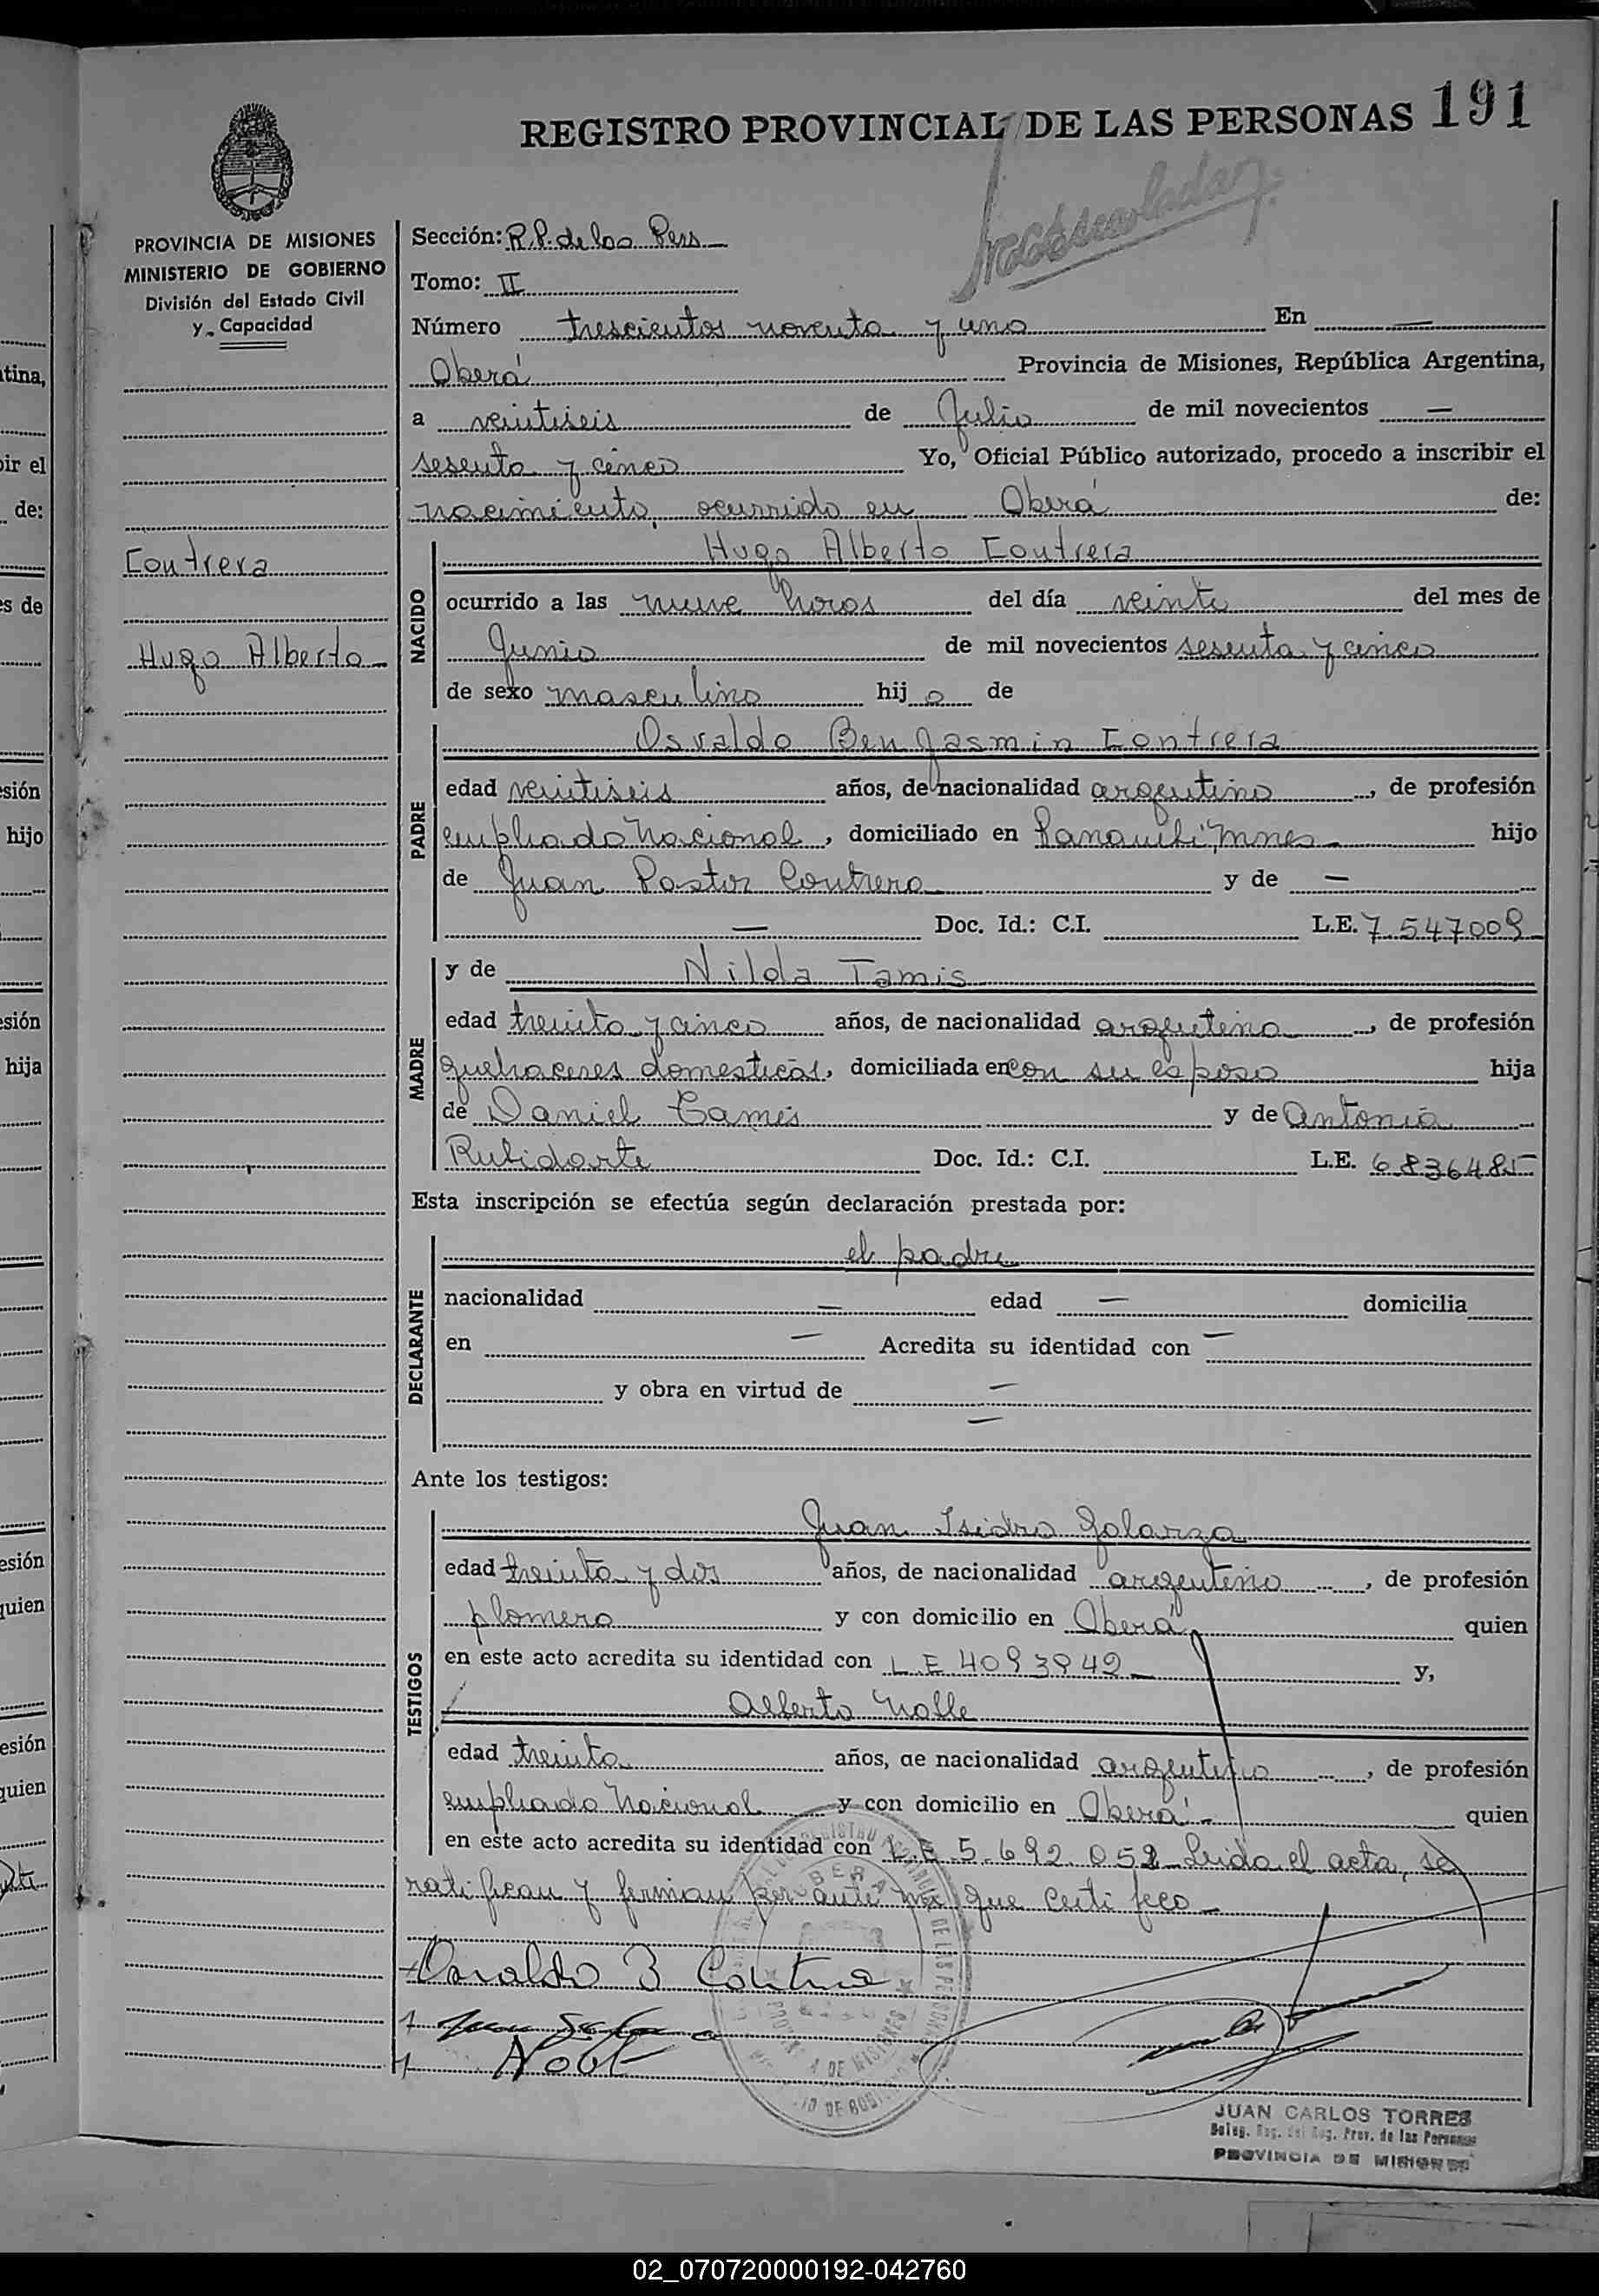 REGISTRO PROVINCIAL DE LAS PERSONAS 191
PROVINCIA DE MISIONES
MINISTERIO DE GOBIERNO
División del Estado Civil
y Capacidad
Contrera
Hugo Alberto
Sección: R.P. de las Pers
Tomo: II
Número trescientos noventa y uno En —
Oberá Provincia de Misiones, República Argentina,
a veintiseis de Julio de mil novecientos —
sesenta y cinco Yo, Oficial Público autorizado, procedo a inscribir el
nacimiento, ocurrido en Oberá de:
NACIDO
Hugo Alberto Contrera
ocurrido a las nueve horas del día veinte del mes de
Junio de mil novecientos sesenta y cinco
de sexo masculino hijo de
PADRE
Osvaldo Benjasmin Contrera
edad veintiseis años, de nacionalidad argentino, de profesión
empleado Nacional, domiciliado en Panambí, Mnes hijo
de Juan Pastor Contrera y de —
— Doc. Id.: C.I. L.E. 7.547009
MADRE
y de Nilda Tamis
edad treinta y cinco años, de nacionalidad argentina, de profesión
quehaceres domesticas, domiciliada en con su esposo hija
de Daniel Tamis y de Antonia
Rubidarte Doc. Id.: C.I. L.E. 6836485
Esta inscripción se efectúa según declaración prestada por:
DECLARANTE
el padre
nacionalidad — edad — domicilia
en — Acredita su identidad con —
y obra en virtud de —
—
Ante los testigos:
TESTIGOS
Juan Isidro Galarza
edad treinta y dos años, de nacionalidad argentino, de profesión
plomero y con domicilio en Oberá quien
en este acto acredita su identidad con L.E 4093942 y,
Alberto Nolle
edad treinta años, de nacionalidad argentino, de profesión
empleado Nacional y con domicilio en Oberá quien
en este acto acredita su identidad con L.E 5.692.052 Leida el acta, se
ratifican y firman por ante mi que certifico
Osvaldo B Contrera
JUAN CARLOS TORRES
PROVINCIA DE MISIONES
02_070720000192-042760